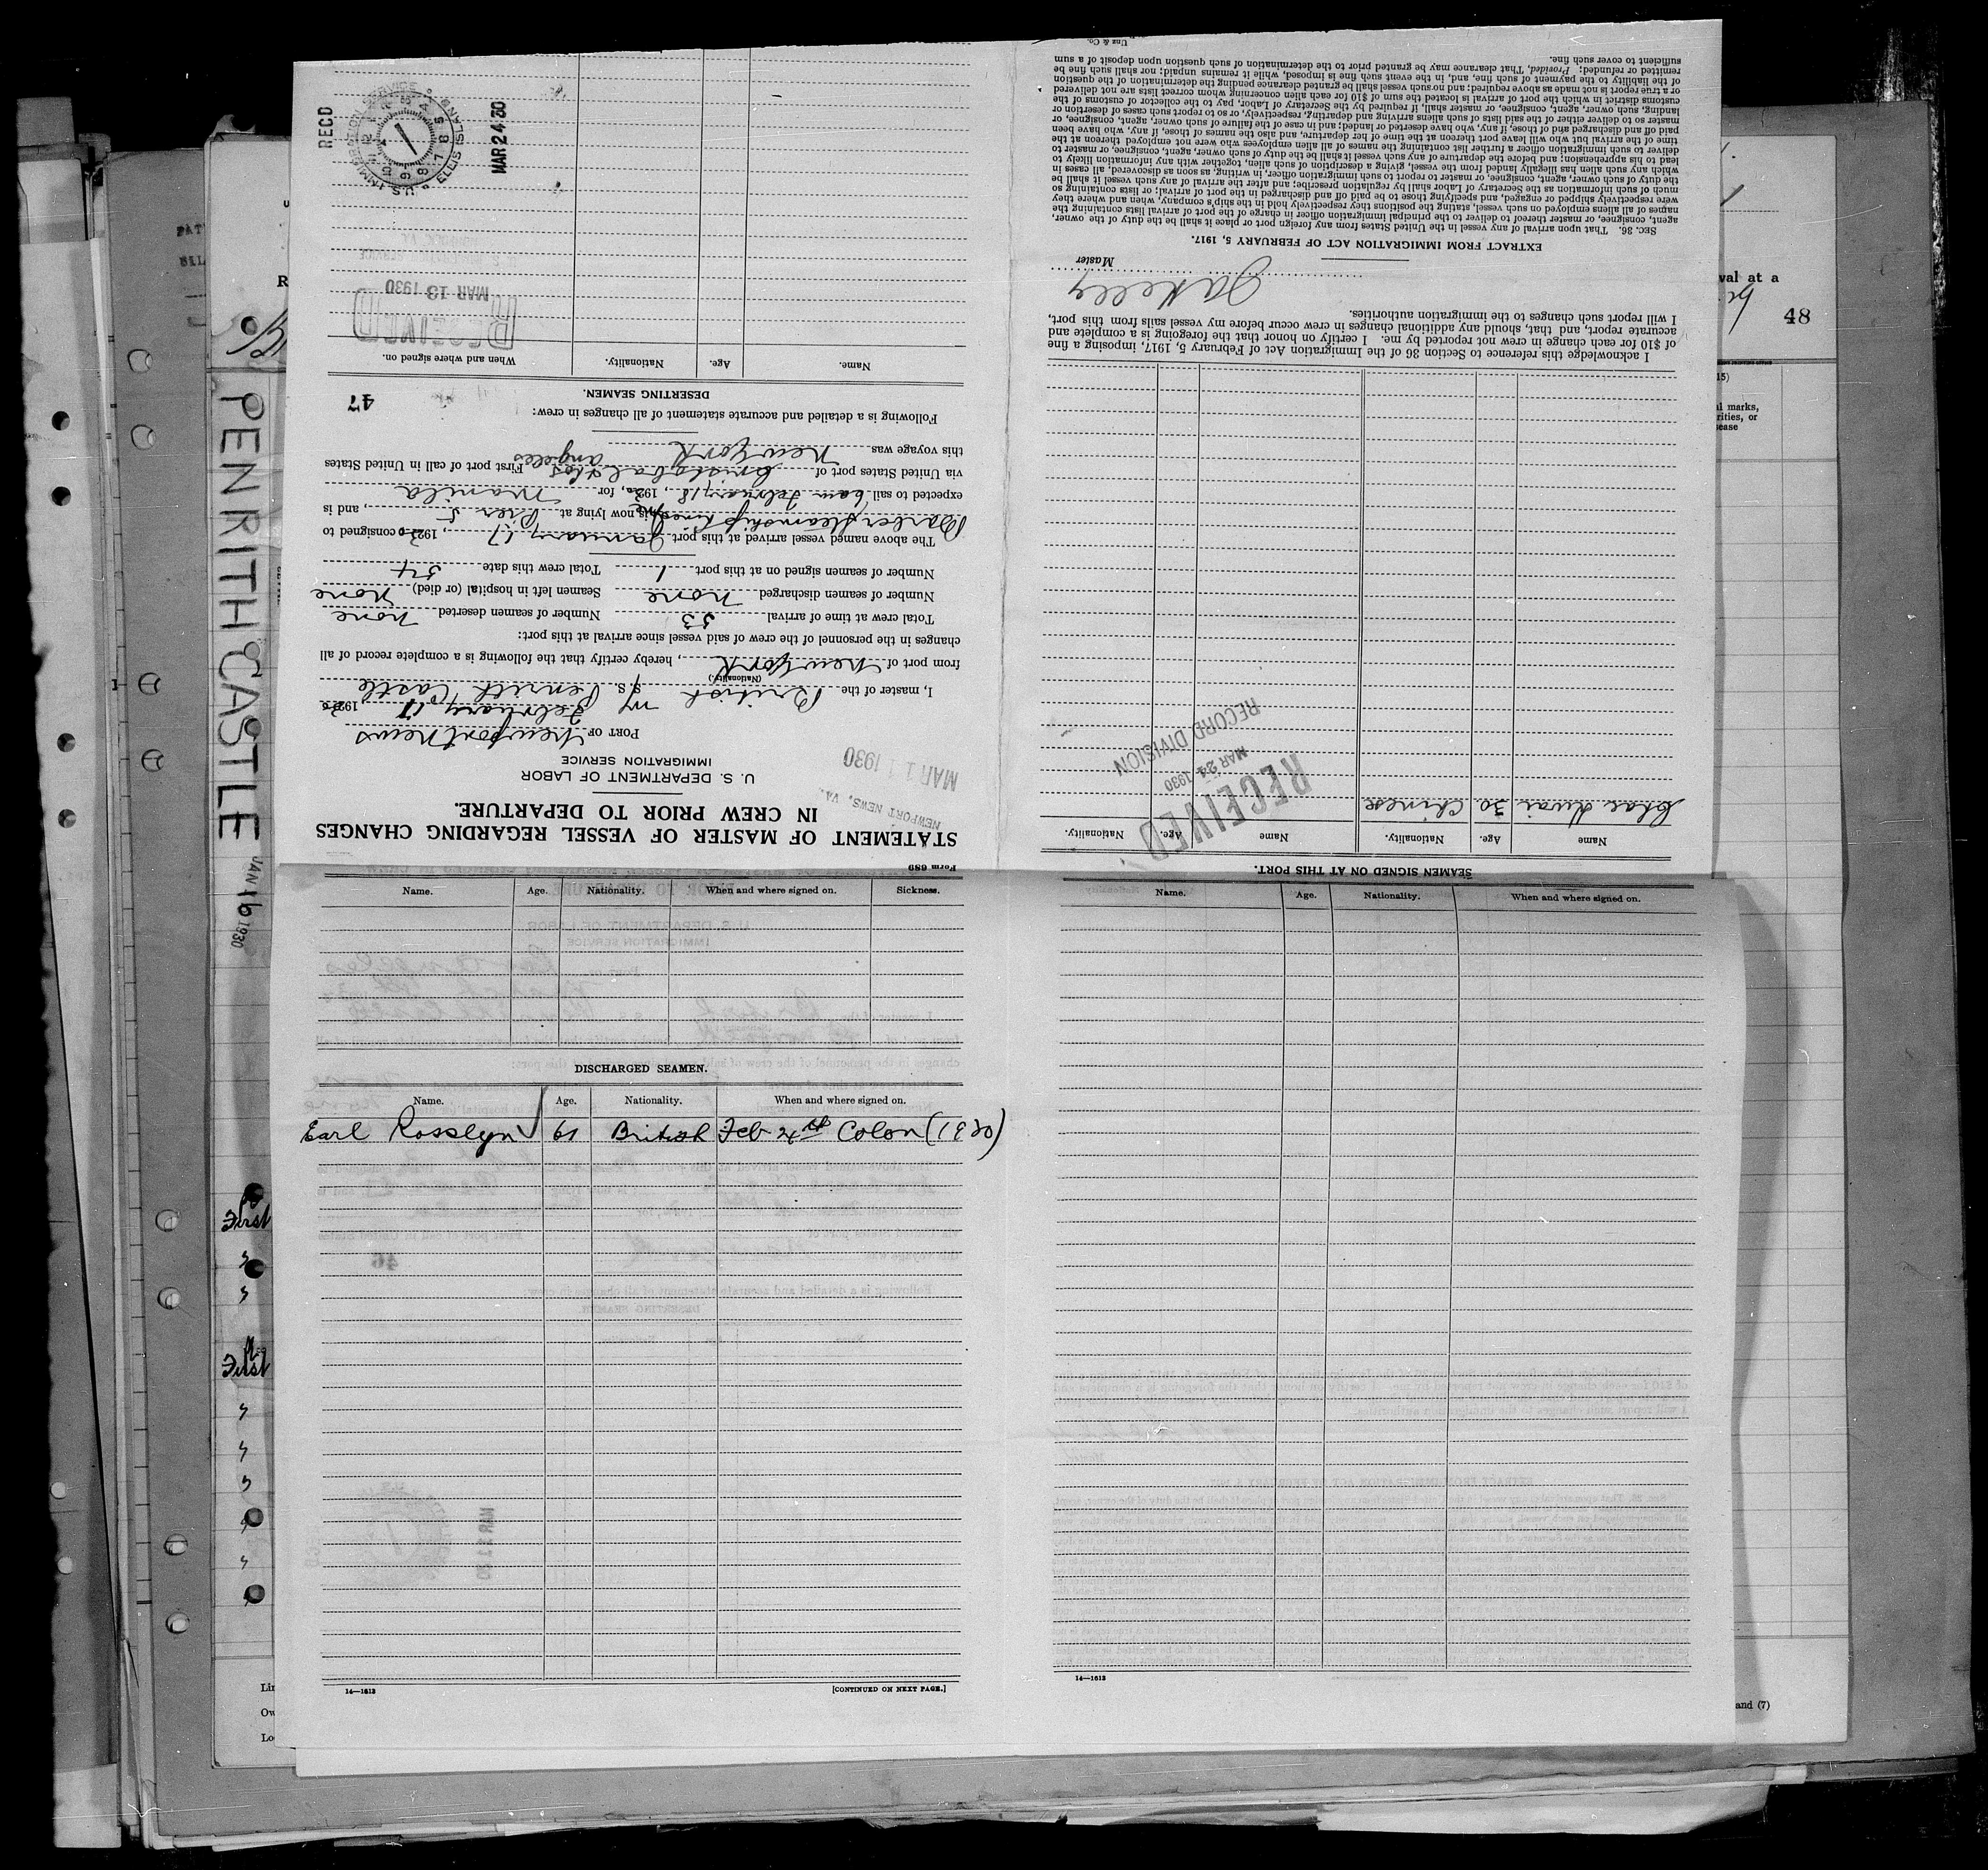 Form 689
STATEMENT OF MASTER OF VESSEL REGARDING CHANGES
IN CREW PRIOR TO DEPARTURE.
NEWPORT NEWS, VA.
MAR 11 1930
U. S. DEPARTMENT OF LABOR
IMMIGRATION SERVICE
PORT OF Newport News
February 17 1930
I, master of the British M/ S. S. Penrith Castle
(Nationality.)
from port of New York, hereby certify that the following is a complete record of all
changes in the personnel of the crew of said vessel since arrival at this port:
Total crew at time of arrival 53 Number of seamen deserted none
Number of seamen discharged none Seamen left in hospital (or died) none
Number of seamen signed on at this port 1 Total crew this date 54
The above named vessel arrived at this port January 17, 1930 consigned to
Barber Steamship Lines, is now lying at Pier 5, and is
expected to sail 6am February 18, 1930, for Manila
via United States port of Cristobal & Los Angeles First port of call in United States
this voyage was New York
Following is a detailed and accurate statement of all changes in crew:
47
DESERTING SEAMEN.
Name. Age. Nationality. When and where signed on.
RECEIVED
MAR 13 1930
REC'D
MAR 24 30
U.S. IMMIGRATION SERVICE
ELLIS ISLAND
SEAMEN SIGNED ON AT THIS PORT.
Name Age. Nationality. Name Age. Nationality.
Kwai 30 Chinese
RECEIVED
MAR 24 1930
RECORD DIVISION
I acknowledge this reference to Section 36 of the Immigration Act of February 5, 1917, imposing a fine
of $10 for each change in crew not reported by me. I certify on honor that the foregoing is a complete and
accurate report, and that, should any additional changes in crew occur before my vessel sails from this port,
I will report such changes to the immigration authorities.
Kelley
Master
EXTRACT FROM IMMIGRATION ACT OF FEBRUARY 5, 1917.
SEC. 36. That upon arrival of any vessel in the United States from any foreign port or place it shall be the duty of the owner,
agent, consignee, or master thereof to deliver to the principal immigration officer in charge of the port of arrival lists containing the
names of all aliens employed on such vessel, stating the positions they respectively hold in the ship's company, when and where they
were respectively shipped or engaged, and specifying those to be paid off and discharged in the port of arrival; or lists containing so
much of such information as the Secretary of Labor shall by regulation prescribe; and after the arrival of any such vessel it shall be
the duty of such owner, agent, consignee, or master to report to such immigration officer, in writing, as soon as discovered, all cases in
which any such alien has illegally landed from the vessel, giving a description of such alien, together with any information likely to
lead to his apprehension; and before the departure of any such vessel it shall be the duty of such owner, agent, consignee, or master to
deliver to such immigration officer a further list containing the names of all alien employees who were not employed thereon at the
time of the arrival but who will leave port thereon at the time of her departure, and also the names of those, if any, who have been
paid off and discharged and of those, if any, who have deserted or landed; and in case of the failure of such owner, agent, consignee, or
master so to deliver either of the said lists of such aliens arriving and departing, respectively, or so to report such cases of desertion or
landing, such owner, agent, consignee, or master shall, if required by the Secretary of Labor, pay to the collector of customs of the
customs district in which the port of arrival is located the sum of $10 for each alien concerning whom correct lists are not delivered
or a true report is not made as above required; and no such vessel shall be granted clearance pending the determination of the question
of the liability to the payment of such fine, and, in the event such fine is imposed, while it remains unpaid; nor shall such fine be
remitted or refunded: Provided, That clearance may be granted prior to the determination of such question upon deposit of a sum
sufficient to cover such fine.
Unz & Co.
Name. Age. Nationality. When and where signed on. Sickness.
DISCHARGED SEAMEN.
Name. Age. Nationality. When and where signed on.
Earl Rosslyn 61 British Feb 24th Colon (1930)
14—1613
[CONTINUED ON NEXT PAGE.]
Name. Age. Nationality. When and where signed on.
14—1613
PENRITH CASTLE JAN 16 1930
First
First
val at a
48
and (7)